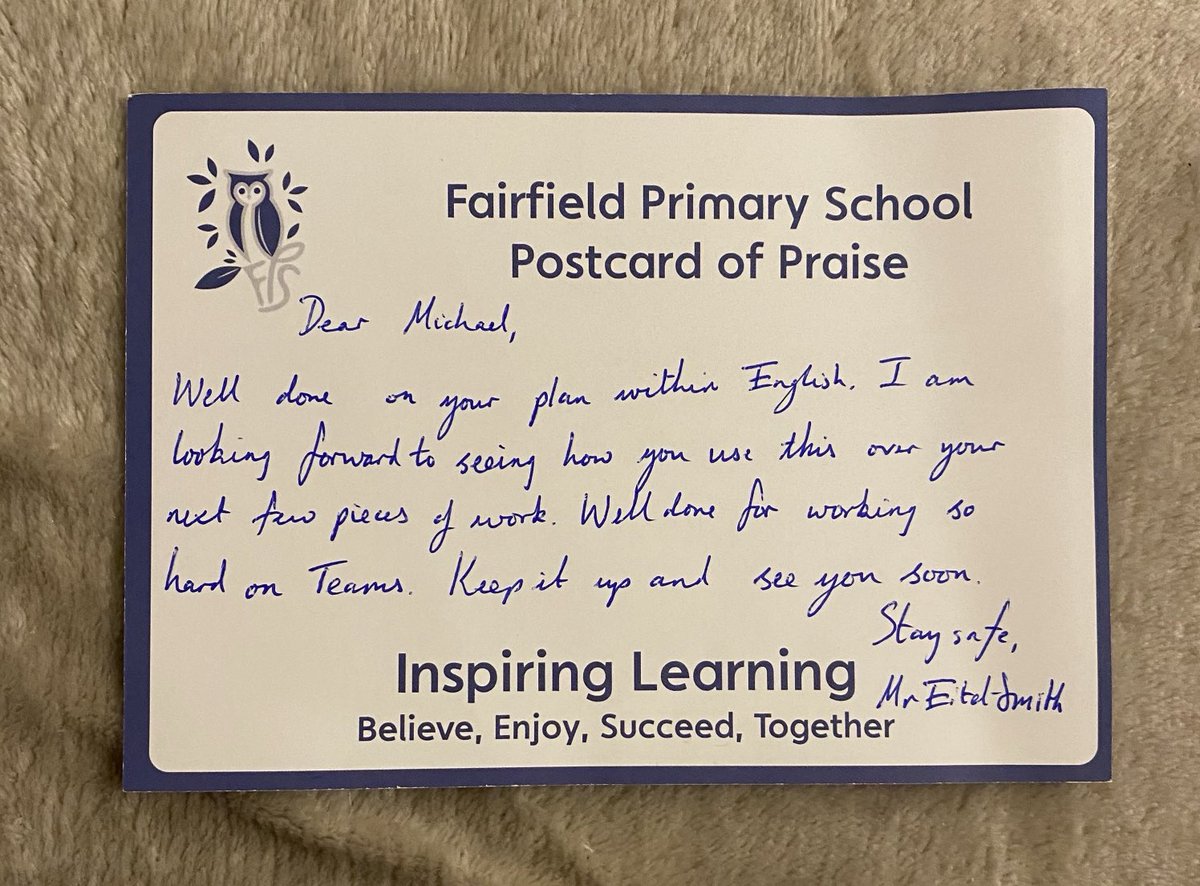 Fairfield Primary School
Postcard of Praise
FPS
Dear Michael,
Well done on your plan within English. I am
looking forward to seeing how you use this over your
next few pieces of work. Well done for working so
hard on Teams. Keep it up and see you soon.
Stay safe,
Mr Eitel-Smith
Inspiring Learning
Believe, Enjoy, Succeed, Together